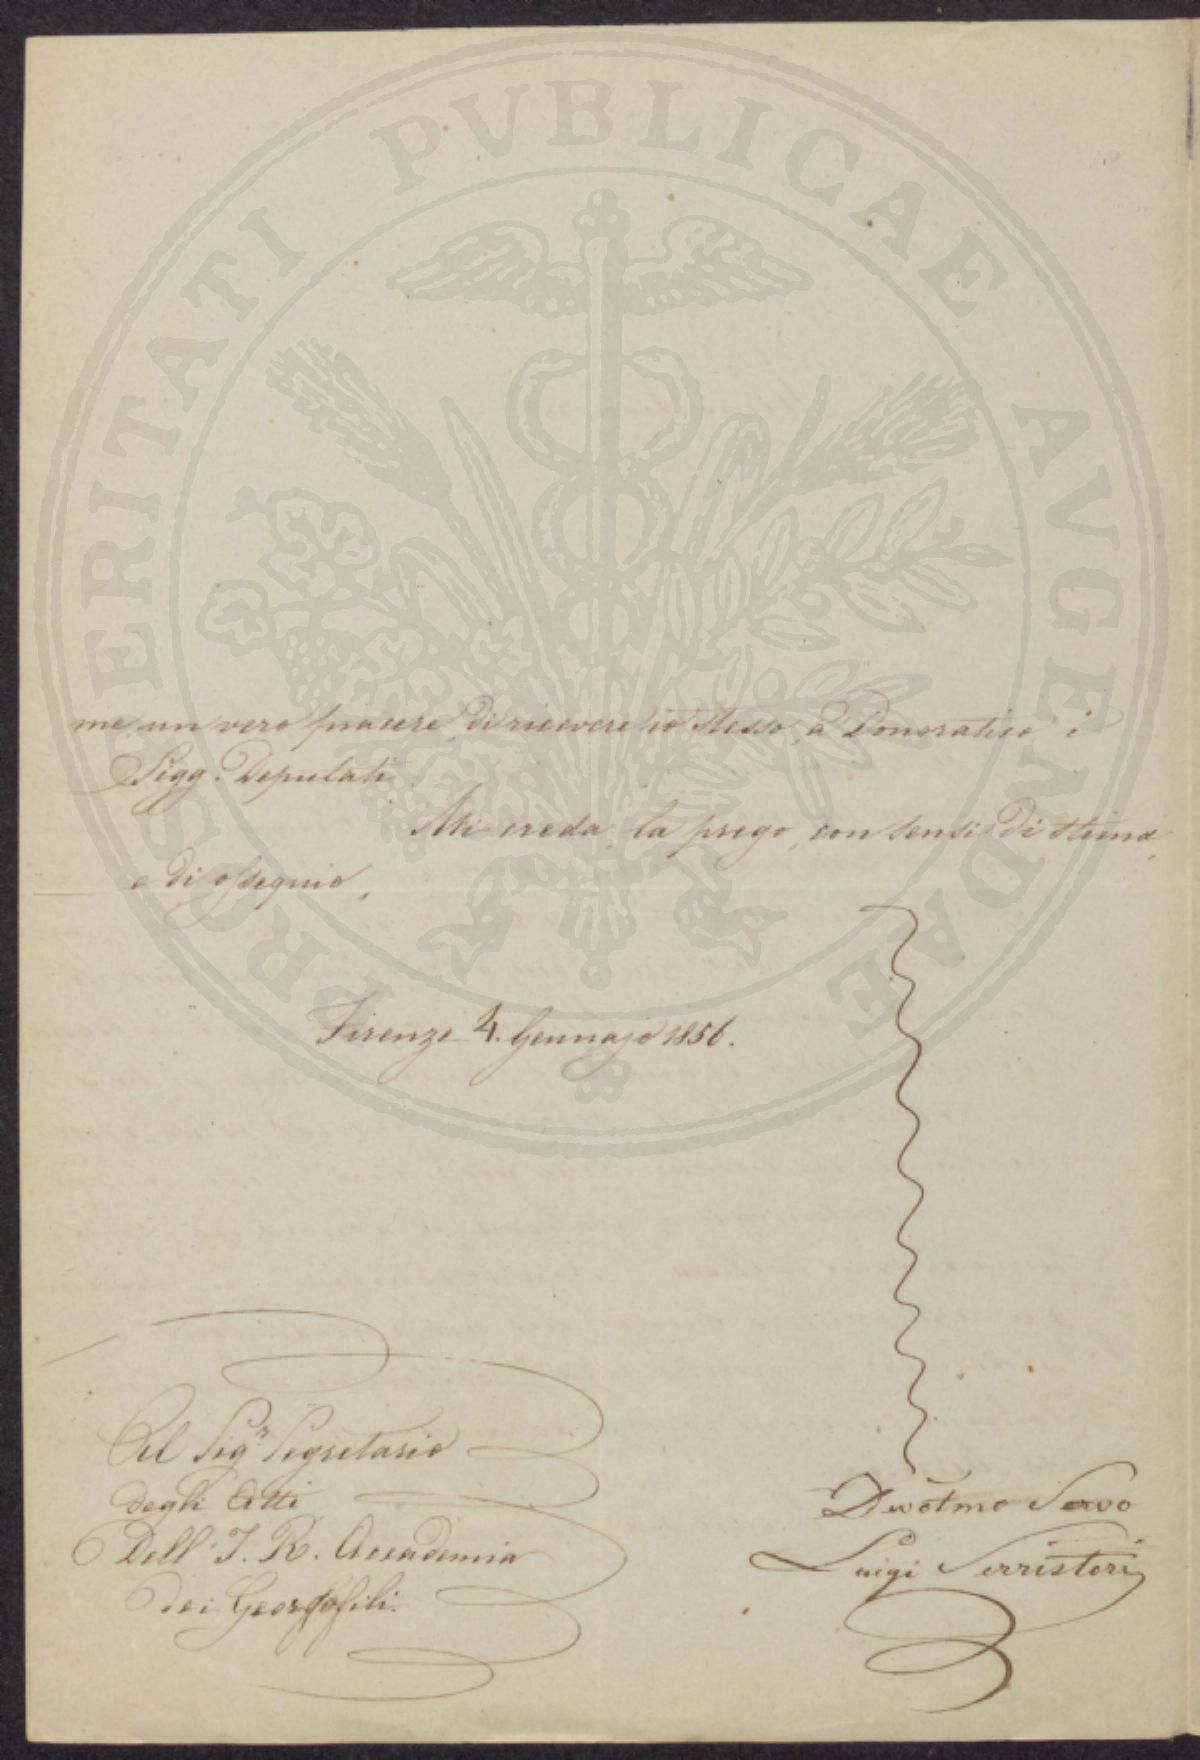 PROSPERITATI PUBLICAE AUGENDAE
me, un vero piacere di ricevere io stesso, a Donoratico i
Sigg. Deputati.
Mi creda, la prego, con sensi di stima,
e di ossequio.
Firenze 4. Gennajo 1856.
Al Sigr. Segretario
degli Atti
Dell' I. R. Accademia
dei Georgofili.
Devotmo Servo
Luigi Serristori